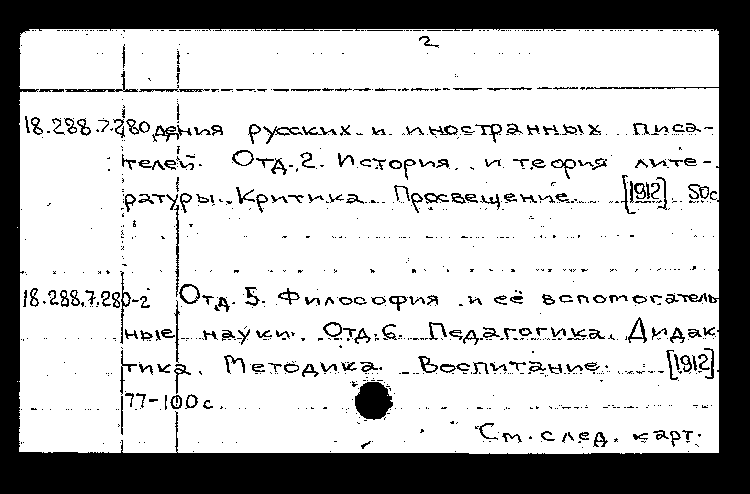 2
18.288.7.280 дения русских и иностранных писа-
телей. Отд. 2. История и теория лите-
ратуры. Критика. Просвещение. [1912] 50с
18.288.7.280-2 Отд. 5. Философия и её вспомогатель
ные науки. Отд. 6. Педагогика. Дидак-
тика. Методика. Воспитание. [1912]
77-100с
См. след. карт.